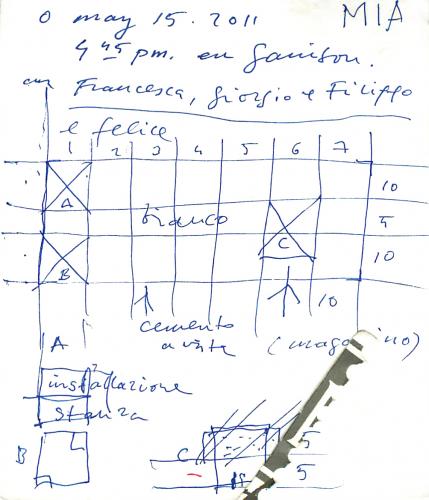 0 may 15. 2011 MIA
4 45 pm. en Garrison.
Francesca, Giorgio e Filippo
e felice
1 2 3 4 5 6 7
A 10
bianco 5
B C 10
10
cemento
a vista
A
installazione
stanza
B
C 5
5